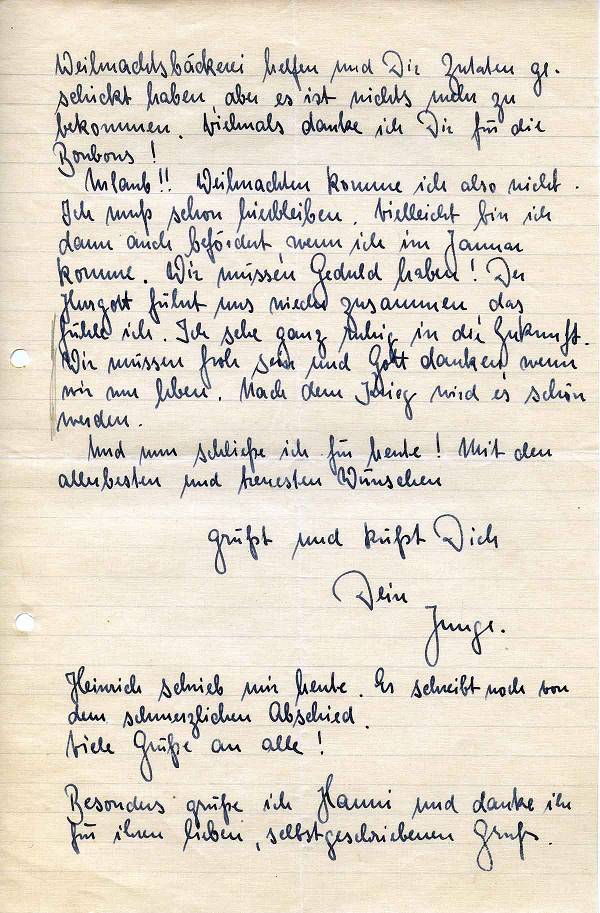 Weihnachtsbäckerei helfen und Dir Zutaten ge-
schickt haben, aber es ist nichts mehr zu
bekommen. Vielmals danke ich Dir für die
Bonbons!
Urlaub!! Weihnachten komme ich also nicht.
Ich muß schon hierbleiben. Vielleicht bin ich
dann auch befördert wenn ich im Januar
komme. Wir müssen Geduld haben! Der
Herrgott führt uns wieder zusammen, das
fühle ich. Ich sehe ganz ruhig in die Zukunft.
Wir müssen froh sein und Gott danken, wenn
wir nur leben. Nach dem Krieg wird es schön
werden.
Und nun schließe ich für heute! Mit den
allerbesten und treuesten Wünschen
grüßt und küßt Dich
Dein
Junge.
Heinrich schrieb mir heute. Er schreibt noch von
dem schmerzlichen Abschied.
Viele Grüße an alle!
Besonders grüße ich Hanni und danke ihr
für ihren lieben, selbstgeschriebenen Gruß.